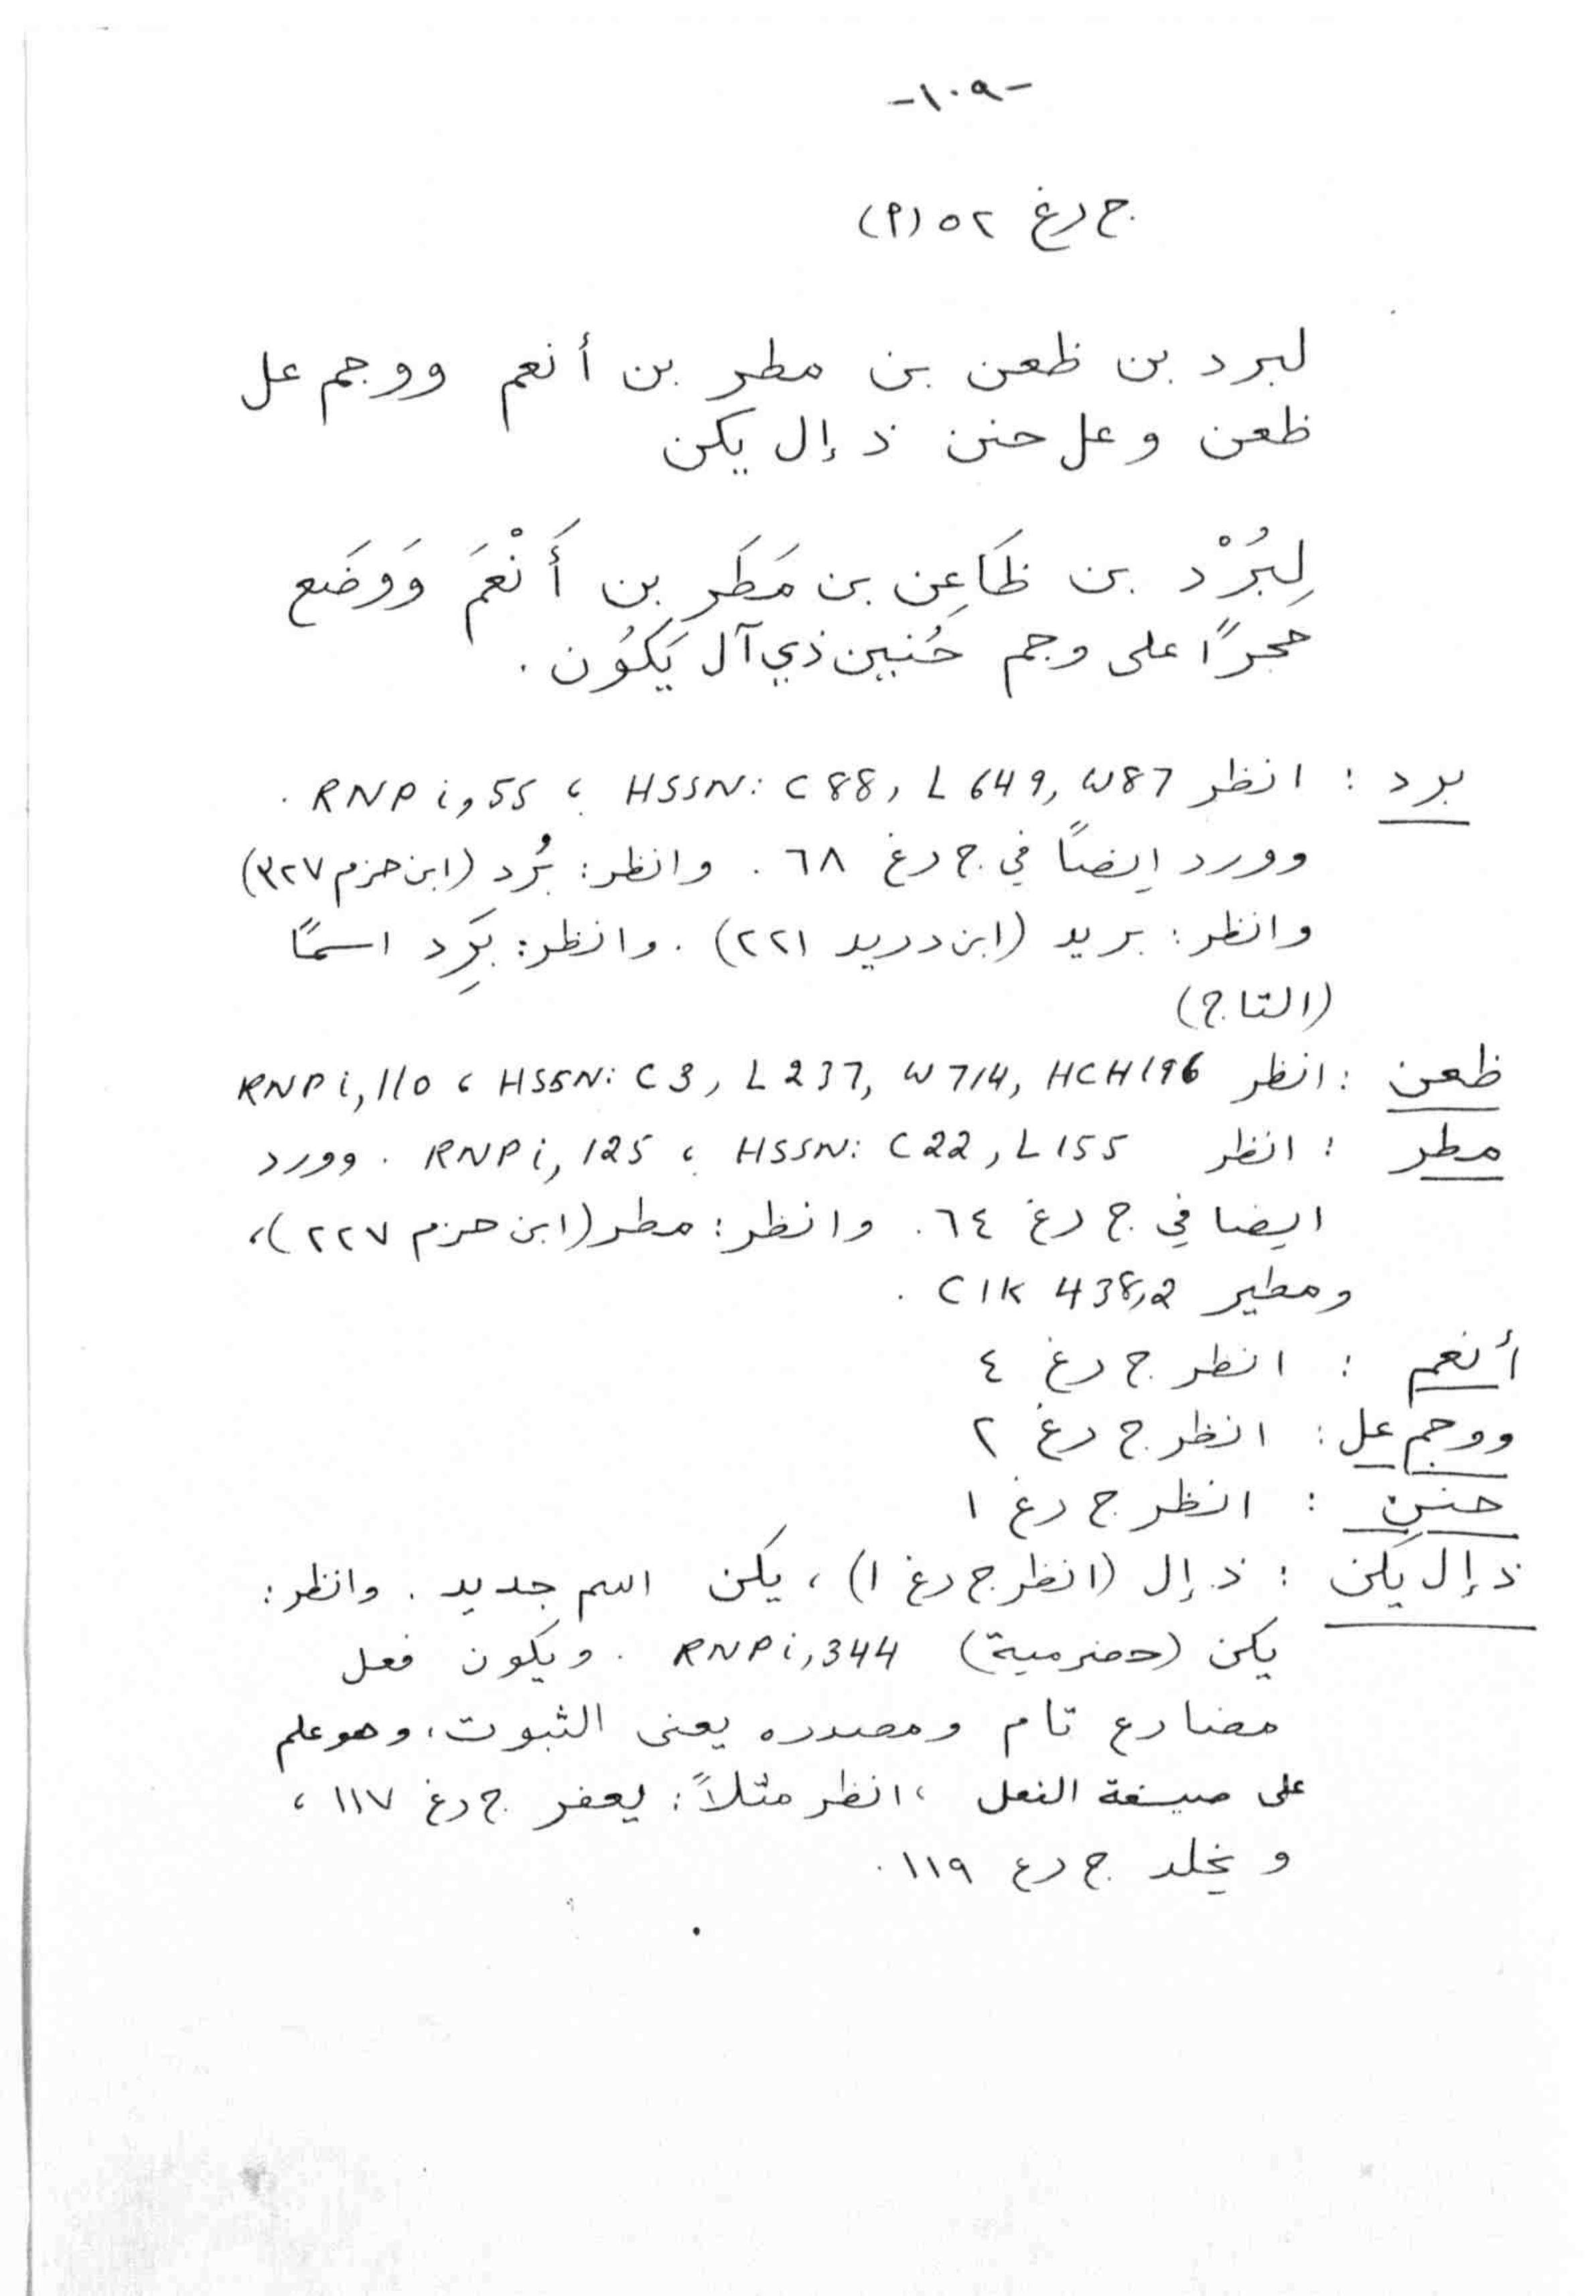 -١٠٩-
ج رغ ٥٢ (م)
لبرد بن ظعن بن مطر بن أنعم ووجم عل
ظعن وعل حنن ذ إل يكن
لِبُرْد بن ظَاعِن بن مَطَر بن أَنْعَمَ وَوضَع
حجرًا على وجم حُنين ذي آل يَكُون .
برد : انظر RNP i, 55 ، HSSN: C 88, L 649, W87 .
وورد ايضاً في ج رغ ٦٨ . وانظر : بُرد (ابن حزم ٣٢٧)
وانظر : بريد (ابن دريد ٢٢١) . وانظر : بَرِد اسمًا
(التاج)
ظعن : انظر RNP i, 110 ، HSSN: C 3, L 237, W 714, HCH 196
مطر : انظر RNP i, 125 ، HSSN: C 22, L 155 . وورد
ايضا في ج رغ ٦٤ . وانظر : مطر (ابن حزم ٢٢٧)،
ومطير CIK 438,2 .
أنعم : انظر ج رغ ٤
ووجم عل : انظر ج رغ ٢
حنن : انظر ج رغ ١
ذ إل يكن : ذ إل (انظر ج رغ ١) ، يكن اسم جديد . وانظر :
يكن (حضرمية) RNP i, 344 . ويكون فعل
مضارع تام ومصدره يعنى الثبوت ، وهو علم
على صيغة الفعل ، انظر مثلاً : يعفر ج رغ ١١٧ ،
و يخلد ج رع ١١٩ .